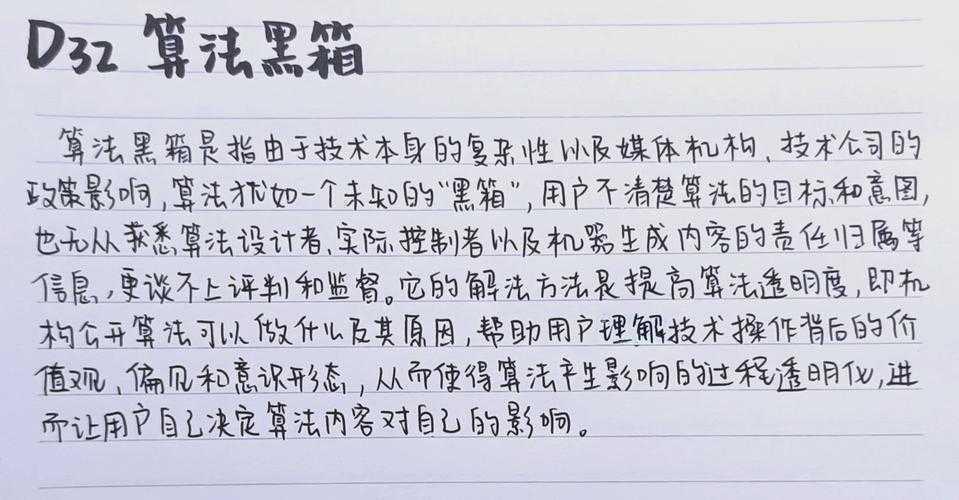 D32 算法黑箱
算法黑箱是指由于技术本身的复杂性以及媒体机构、技术公司的
政策影响,算法犹如一个未知的“黑箱”,用户不清楚算法的目标和意图,
也无从获悉算法设计者、实际控制者以及机器生成内容的责任归属等
信息,更谈不上评判和监督。它的解法方法是提高算法透明度,即机
构公开算法可以做什么及其原因,帮助用户理解技术操作背后的价
值观、偏见和意识形态,从而使得算法产生影响的过程透明化,进
而让用户自己决定算法内容对自己的影响。